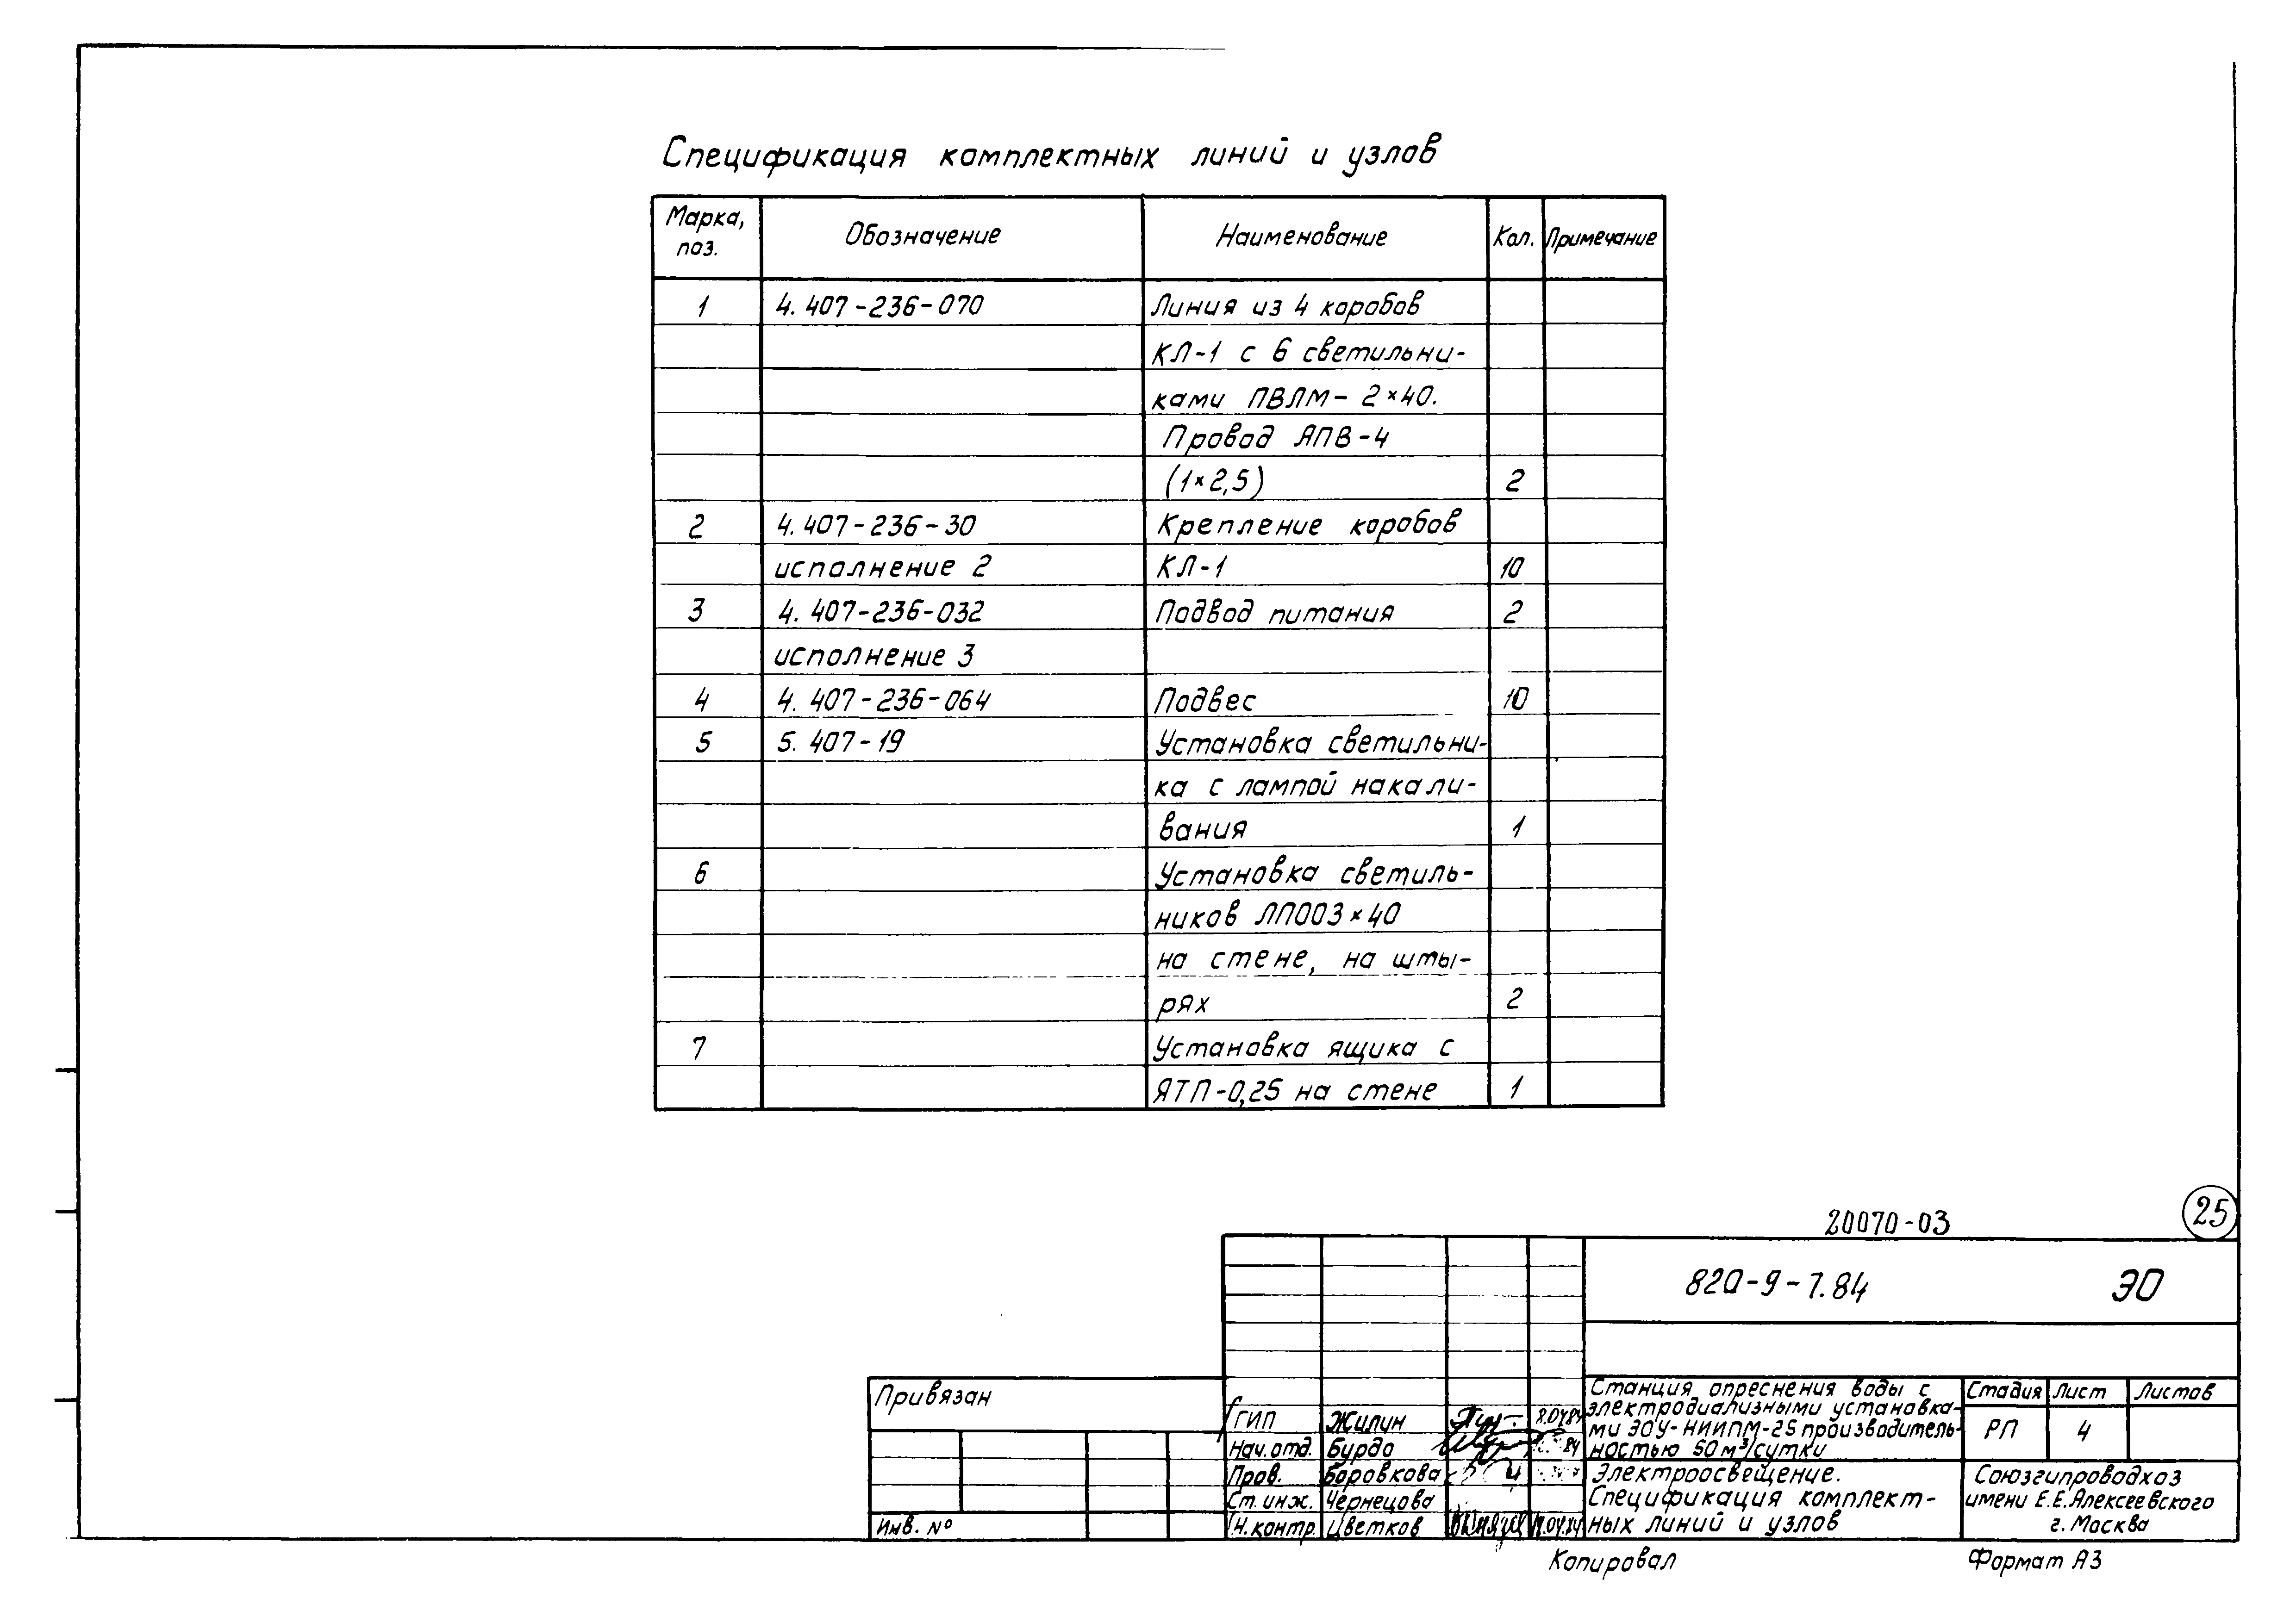 Спецификация комплектных линий и узлов
Марка, поз. Обозначение Наименование Кол. Примечание
1 4.407-236-070 Линия из 4 коробов
КЛ-1 с 6 светильни-
ками ПВЛМ- 2×40.
Провод АПВ-4
(1×2,5) 2
2 4.407-236-30 Крепление коробов
исполнение 2 КЛ-1 10
3 4.407-236-032 Подвод питания 2
исполнение 3
4 4.407-236-064 Подвес 10
5 5.407-19 Установка светильни-
ка с лампой накали-
вания 1
6 Установка светиль-
ников ЛПО03×40
на стене, на шты-
рях 2
7 Установка ящика с
ЯТП-0,25 на стене 1
20070-03 25
820-9-7.84 ЭО
Привязан
Инв. №
ГИП Жилин 8.04.84
Нач. отд. Бурдо 84
Пров. Боровкова
Ст. инж. Чернецова
Н. контр. Цветков
Станция опреснения воды с
электродиализными установка-
ми ЭОУ-НИИПМ-25 производитель-
ностью 50 м³/сутки
Стадия Лист Листов
РП 4
Электроосвещение.
Спецификация комплект-
ных линий и узлов
Союзгипроводхоз
имени Е.Е.Алексеевского
г. Москва
Копировал Формат А3